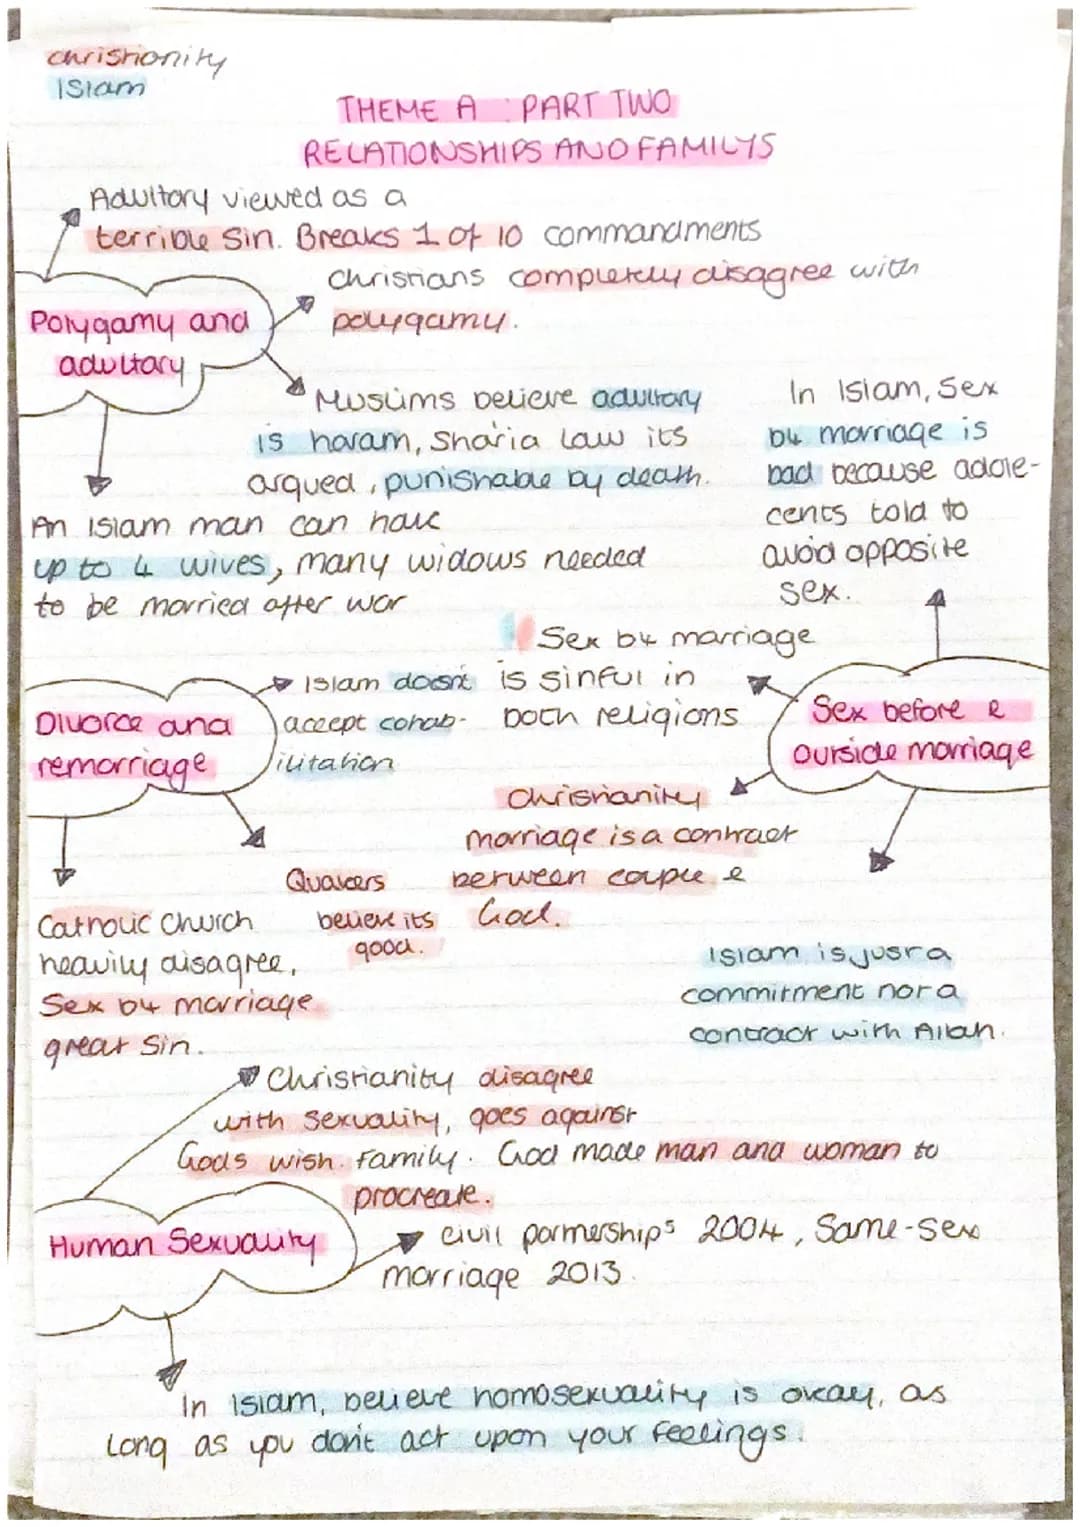 christianity
ISlam
THEME A : PART TWO
RELATIONSHIPS AND FAMILYS
Adultory viewed as a
terrible Sin. Breaks 1 of 10 commandments
Polygamy and
adultary
christians completely disagree with
polygamy.
Muslims believe adultary
is haram, Sharia law its
argued, punishable by death.
An Islam man can have
up to 4 wives, many widows needed
to be married after war
In Islam, Sex
b4 marriage is
bad because adole-
cents told to
avoid opposite
sex.
Sex b4 marriage
is sinful in
both religions
Sex before &
outside marriage
Christianity
marriage is a contract
between couple &
God.
Islam is just a
commitment not a
contract with Allah.
Divorce and
remarriage
Islam doesn't
accept cohab-
ilitation
Quakers
believe its
good.
Catholic Church
heavily disagree,
Sex b4 marriage
great Sin.
Human Sexuality
Christianity disagree
with Sexuality, goes against
Gods wish. Family. God made man and woman to
procreate.
civil partnerships 2004, Same-sex
marriage 2013.
In Islam, believe homosexuality is okay, as
long as you don't act upon your feelings.